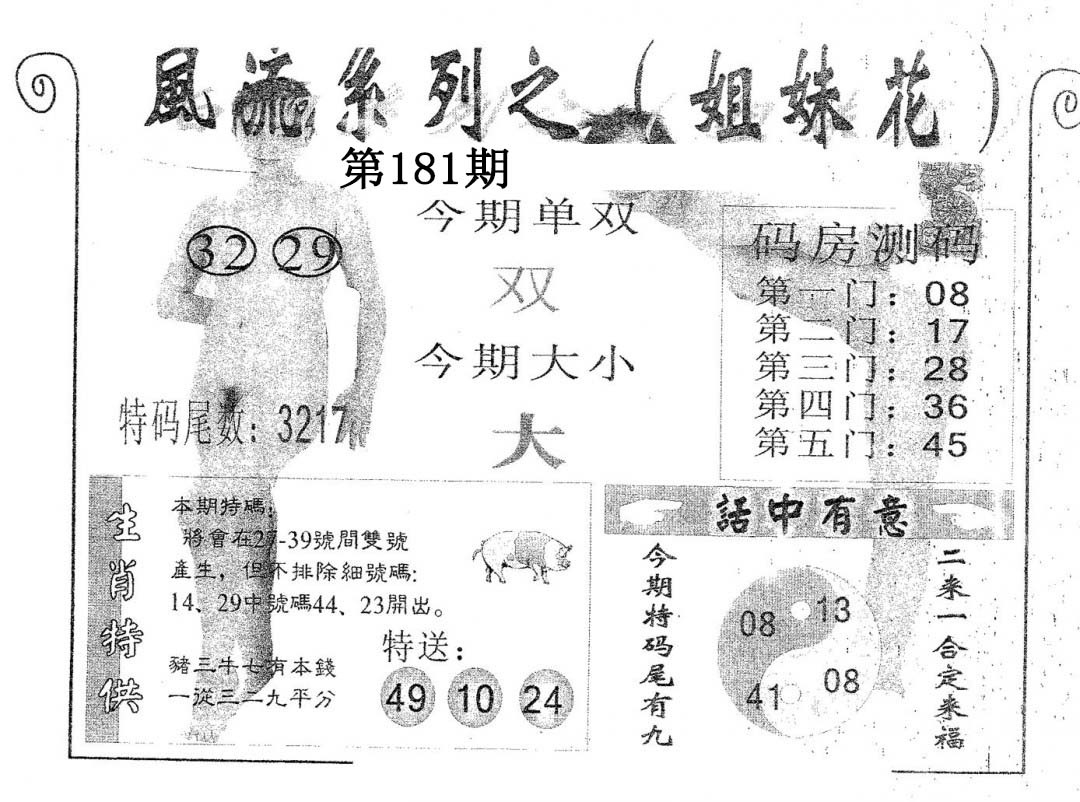 風流系列之（姐妹花）
第181期
32 29
今期单双
双
今期大小
大
特码尾数：3217
码房测码
第一门：08
第二门：17
第三门：28
第四门：36
第五门：45
生肖特供
本期特碼：
將會在27-39號間雙號
產生，但不排除細號碼：
14、29中號碼44、23開出。
豬三牛七有本錢
一從三二九平分
特送：
49 10 24
話中有意
今期特码尾有九
08 13
41 08
二来一合定来福